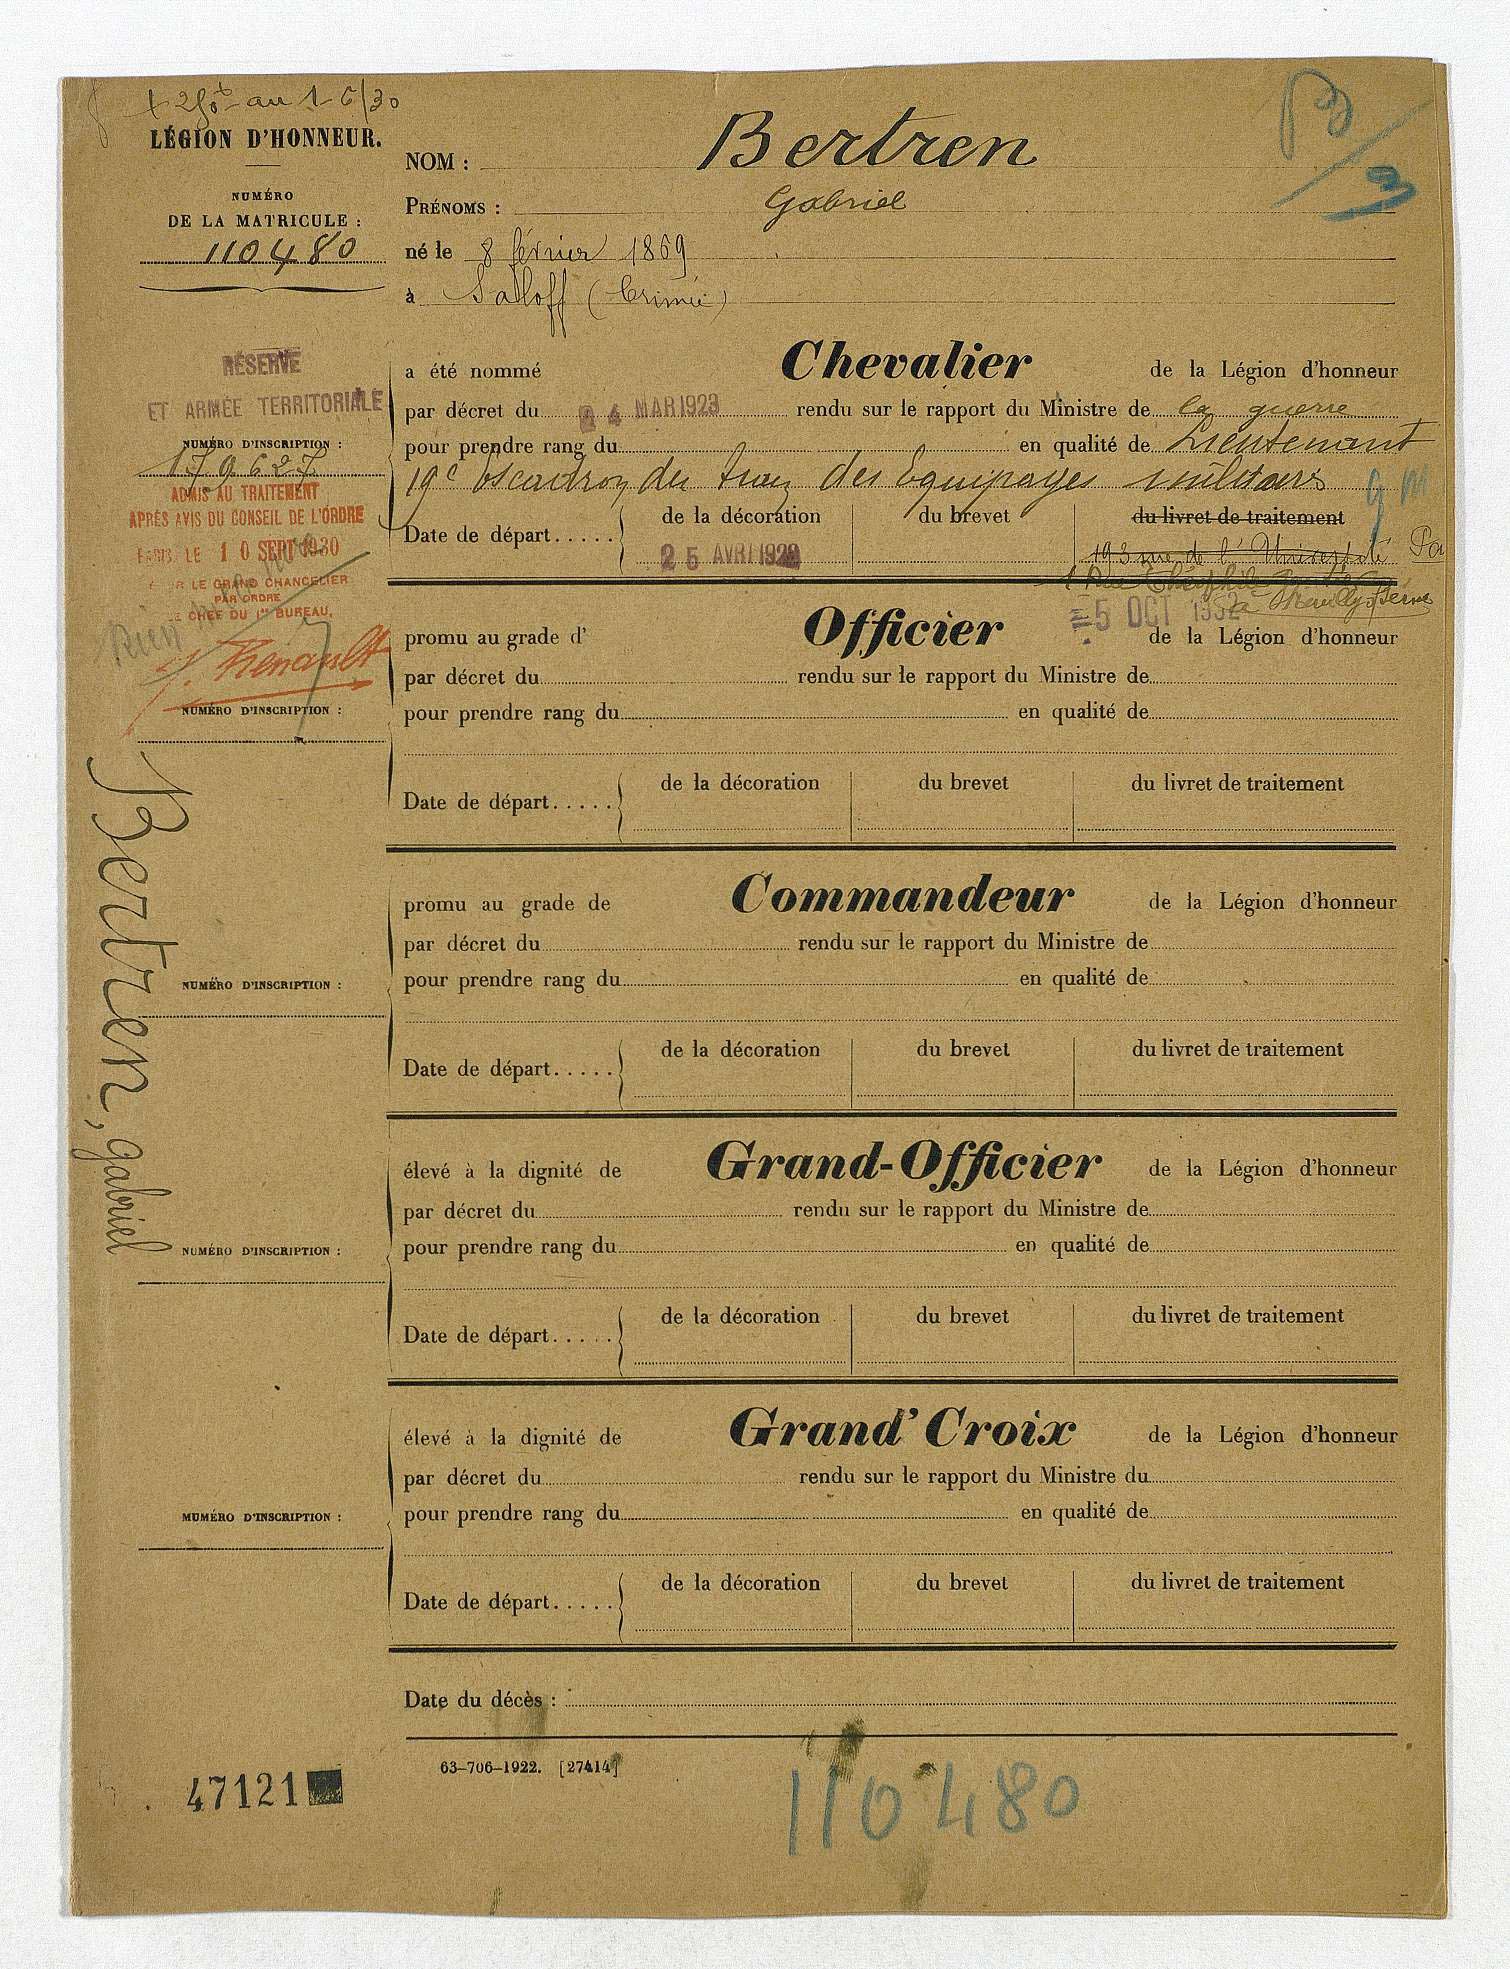 LÉGION D'HONNEUR.
NUMÉRO
DE LA MATRICULE :
110480
NOM : Bertren
PRÉNOMS : Gabriel
né le 8 février 1869
à Sabloff (Crimée)
RÉSERVE
ET ARMÉE TERRITORIALE
NUMÉRO D'INSCRIPTION :
179627
ADMIS AU TRAITEMENT
APRÈS AVIS DU CONSEIL DE L'ORDRE
PARIS, LE 10 SEPT 1930
LE GRAND CHANCELIER
PAR ORDRE
LE CHEF DU 1er BUREAU,
a été nommé Chevalier de la Légion d'honneur
par décret du 24 MAR 1923 rendu sur le rapport du Ministre de la guerre
pour prendre rang du en qualité de Lieutenant
19e Escadron du train des Equipages militaires
Date de départ..... de la décoration du brevet du livret de traitement
25 AVRI 1923
193 rue de l'Université
5 OCT 1932
promu au grade d' Officier de la Légion d'honneur
par décret du rendu sur le rapport du Ministre de
NUMÉRO D'INSCRIPTION :
pour prendre rang du en qualité de
Date de départ..... de la décoration du brevet du livret de traitement
Bertren, gabriel
promu au grade de Commandeur de la Légion d'honneur
par décret du rendu sur le rapport du Ministre de
NUMÉRO D'INSCRIPTION :
pour prendre rang du en qualité de
Date de départ..... de la décoration du brevet du livret de traitement
élevé à la dignité de Grand-Officier de la Légion d'honneur
par décret du rendu sur le rapport du Ministre de
NUMÉRO D'INSCRIPTION :
pour prendre rang du en qualité de
Date de départ..... de la décoration du brevet du livret de traitement
élevé à la dignité de Grand'Croix de la Légion d'honneur
par décret du rendu sur le rapport du Ministre du
MUMÉRO D'INSCRIPTION :
pour prendre rang du en qualité de
Date de départ..... de la décoration du brevet du livret de traitement
Date du décès :
63-706-1922. [27414]
47121
110480